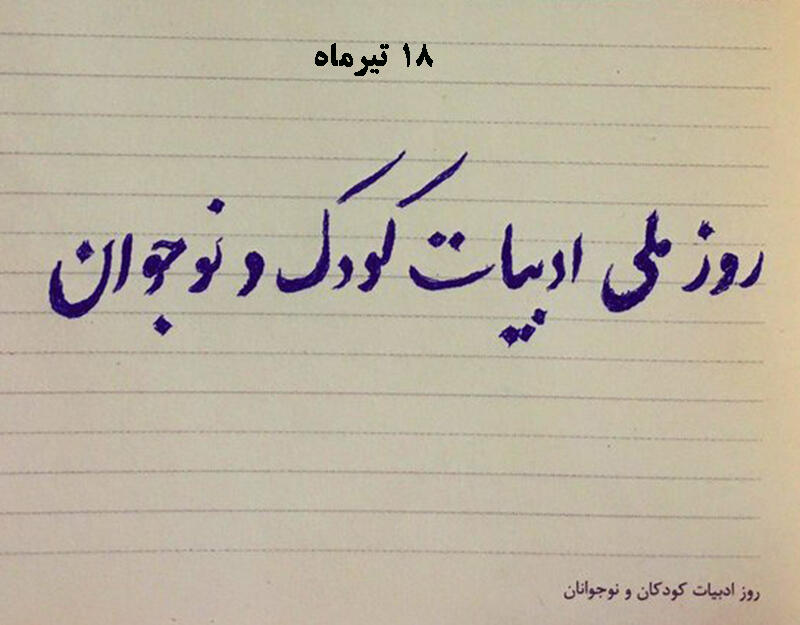 ۱۸ تیرماه
روز ملی ادبیات کودک و نوجوان
روز ادبیات کودکان و نوجوانان